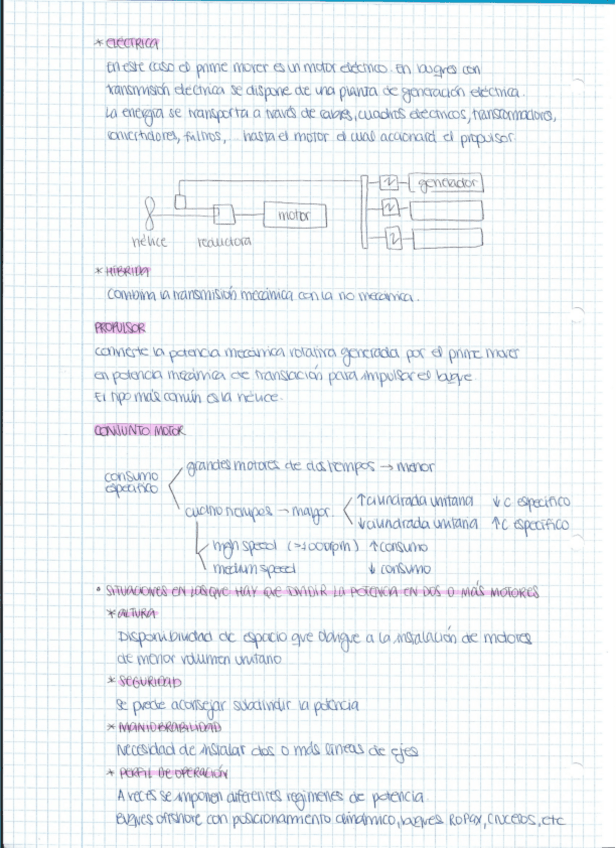 * ELÉCTRICA
En este caso el prime mover es un motor eléctrico. En buques con
transmisión eléctrica se dispone de una planta de generación eléctrica.
La energía se transporta a través de cables, cuadros eléctricos, transformadores,
convertidores, filtros, ... hasta el motor el cual accionará el propulsor
generador
motor
hélice reductora
* HÍBRIDA
Combina la transmisión mecánica con la no mecánica.
PROPULSOR
Convierte la potencia mecánica rotativa generada por el prime mover
en potencia mecánica de translación para impulsar el buque
El tipo más común es la hélice.
CONJUNTO MOTOR
consumo específico
grandes motores de dos tiempos → menor
cuatro tiempos → mayor
↑ cilindrada unitaria ↓ c específico
↓ cilindrada unitaria ↑ c específico
high speed (>1000rpm) ↑ consumo
medium speed ↓ consumo
• SITUACIONES EN LAS QUE HAY QUE DIVIDIR LA POTENCIA EN DOS O MÁS MOTORES
* ALTURA
Disponibilidad de espacio que obligue a la instalación de motores
de menor volumen unitario
* SEGURIDAD
Se puede aconsejar subdividir la potencia
* MANIOBRABILIDAD
Necesidad de instalar dos o más líneas de ejes
* PERFIL DE OPERACIÓN
A veces se imponen diferentes regímenes de potencia.
Buques offshore con posicionamiento dinámico, buques ROPAX, cruceros, etc